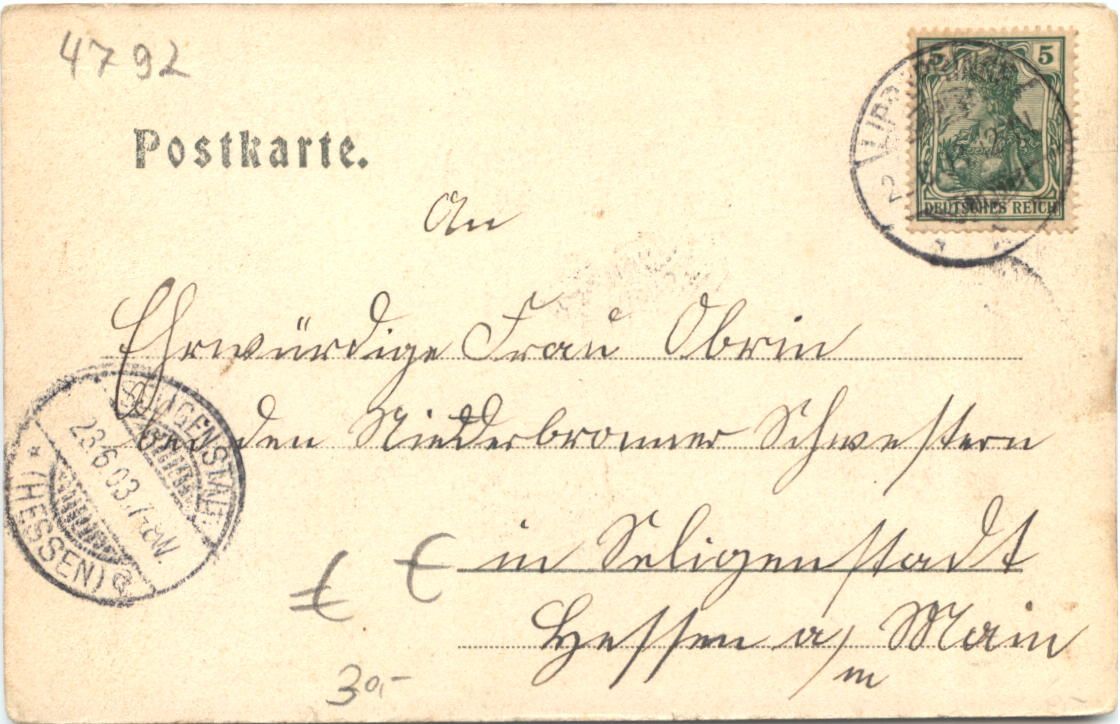 4792
Postkarte.
5
DEUTSCHES REICH
An
Ehrwürdige Frau Obrin
bei den Niederbronner Schwestern
in Seligenstadt
Hessen a/ Main
m
SELIGENSTADT
23.6.03.
* (HESSEN)
€ €
30,-